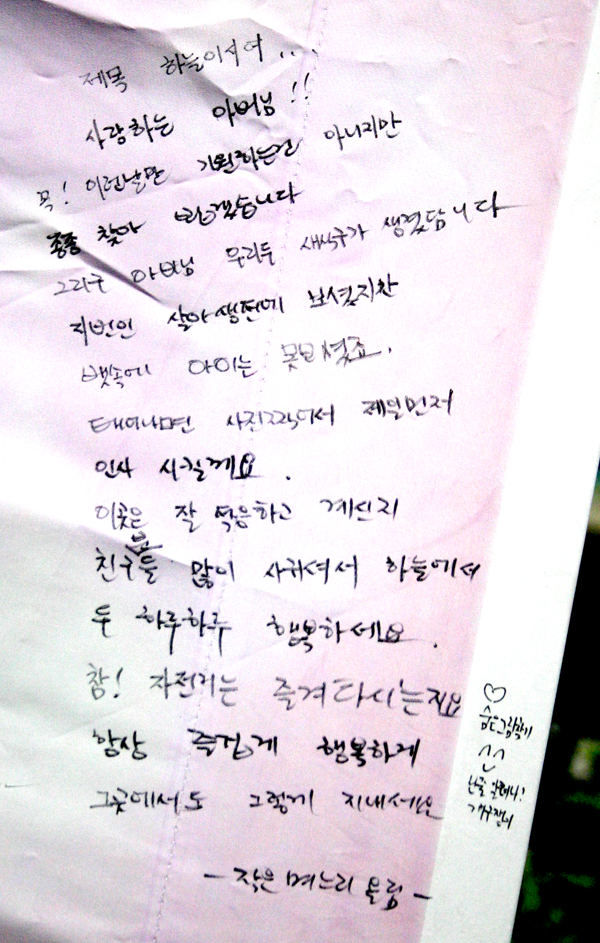 제목 하늘이시여...
사랑하는 아버님!!
꼭! 이런날만 기원하는건 아니지만
종종 찾아 뵙겠습니다
그리구 아버님 우리두 새식구가 생겼답니다
지번인 살아생전에 보셨지만
뱃속에 아이는 못보셨죠.
태어나면 사진찍어서 제일먼저
인사 시킬께요.
이곳은 잘 적응하고 계신지
친구분들 많이 사귀셔서 하늘에서
두 하루하루 행복하세요.
참! 자전거는 즐겨 타시는지요
항상 즐겁게 행복하게
그곳에서도 그렇게 지내세요
-작은 며느리 올림-
♡
숨은그림찾기
^^
개구쟁이